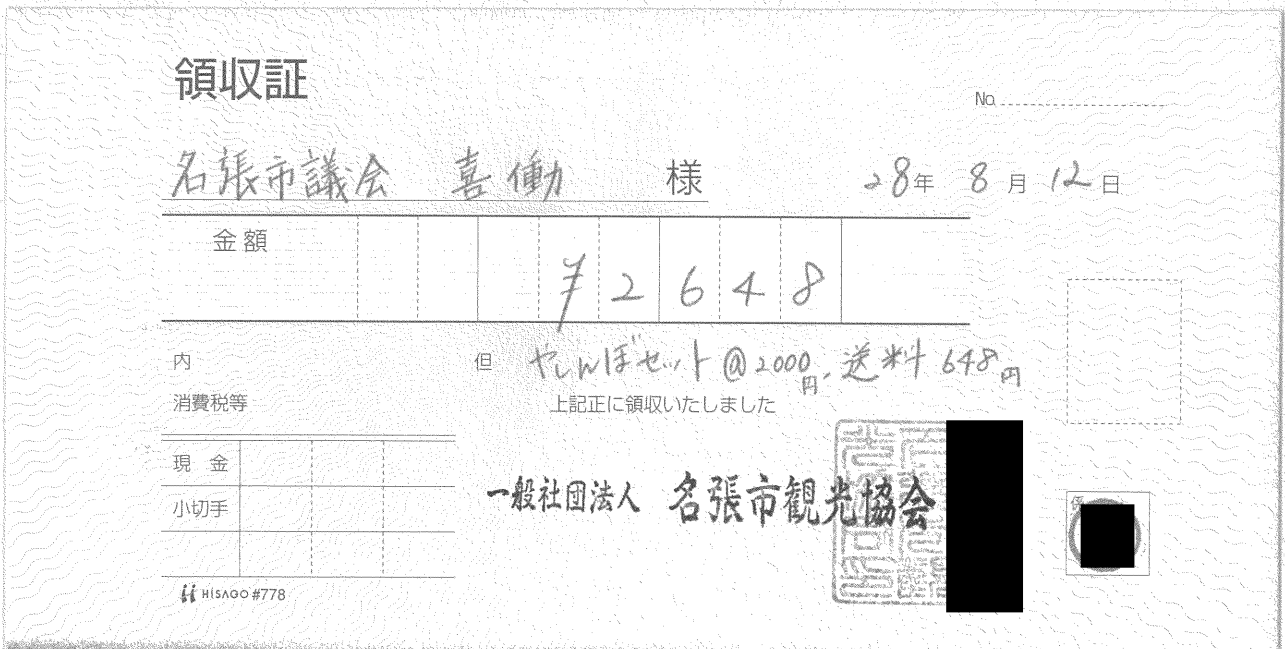 領収証
No.
名張市議会 喜働 様 28年 8月12日
金額 ¥2648
内 但 やしんぼセット@2000円、送料648円
消費税等 上記正に領収いたしました
現金
小切手
一般社団法人 名張市観光協会
係
HISAGO #778